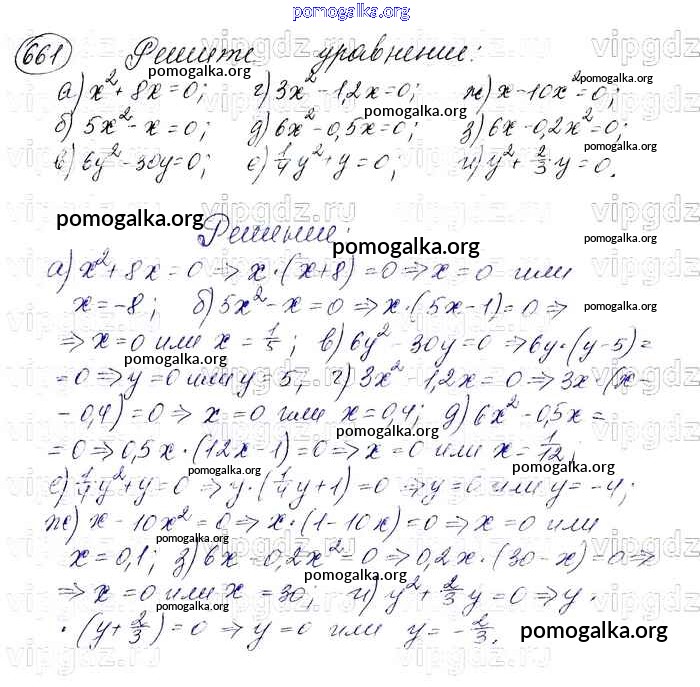 pomogalka.org
661 Решите уравнение:
а) x²+8x=0; г) 3x²-1,2x=0; ж) x-10x²=0;
б) 5x²-x=0; д) 6x²-0,5x=0; з) 6x-0,2x²=0;
в) 6y²-30y=0; е) 1/4y²+y=0; и) y²+2/3y=0.
Решение:
а) x²+8x=0 ⇒ x·(x+8)=0 ⇒ x=0 или
x=-8; б) 5x²-x=0 ⇒ x·(5x-1)=0 ⇒
⇒ x=0 или x=1/5; в) 6y²-30y=0 ⇒ 6y·(y-5)=
=0 ⇒ y=0 или y=5; г) 3x²-1,2x=0 ⇒ 3x·(x-
-0,4)=0 ⇒ x=0 или x=0,4; д) 6x²-0,5x=
=0 ⇒ 0,5x·(12x-1)=0 ⇒ x=0 или x=1/12;
е) 1/4y²+y=0 ⇒ y·(1/4y+1)=0 ⇒ y=0 или y=-4;
ж) x-10x²=0 ⇒ x·(1-10x)=0 ⇒ x=0 или
x=0,1; з) 6x-0,2x²=0 ⇒ 0,2x·(30-x)=0 ⇒
⇒ x=0 или x=30; и) y²+2/3y=0 ⇒ y·
·(y+2/3)=0 ⇒ y=0 или y=-2/3.
pomogalka.org